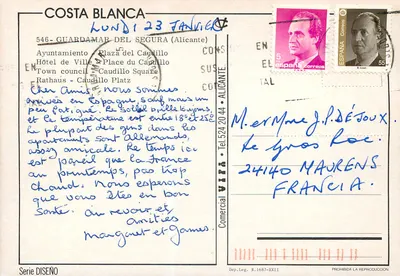 COSTA BLANCA
LUNDI 23 JANVIER
546.- GUARDAMAR DEL SEGURA (Alicante)
Ayuntamiento - Plaza del Caudillo
Hôtel de Ville - Place du Caudillo
Town council - Caudillo Square
Rathaus - Caudillo Platz
Cher Amis, nous sommes
arrivés en Espagne, sauf mais un
peu fatigué. Le Soleil brille toujours
et le température est entre 18° et 25°C
Le plupart des gens dans les
apartments sont Allemands,
assez amicale. Le temps ici
est pareil que la France
au printemps, pas trop
chaud. Nous esperons
que vous êtes en bon
santé. Au revoir et
amitiés
Margaret et James.
Serie DISEÑO
Comercial VIPA • Tel 524 20 44 - ALICANTE
ESPAÑA
ESPAÑA
55
M. et Mme J.P. DÉJOUX.
Le Gros Roc.
24140 MAURENS
FRANCIA.
Dep. Leg. B. 1687-XXII
PROHIBIDA LA REPRODUCCION